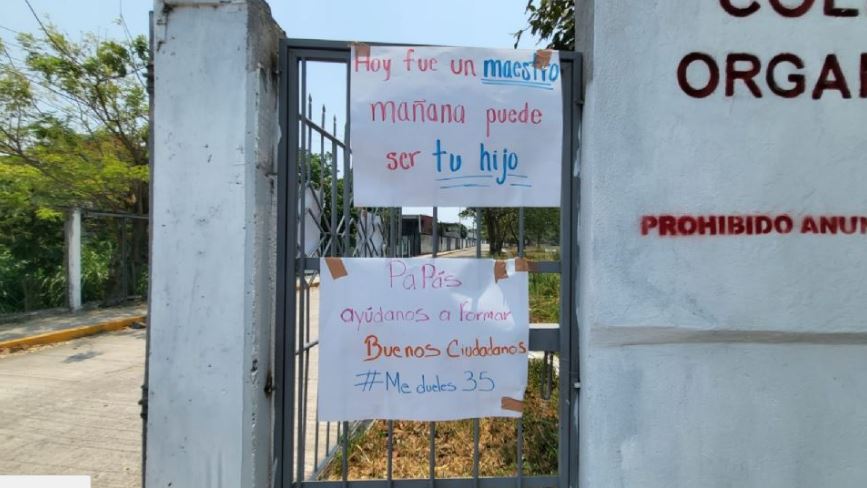 Hoy fue un maestro
mañana puede
ser tu hijo
PaPás
ayúdanos a Formar
Buenos Ciudadanos
#Me dueles 35
COL
ORGA
PROHIBIDO ANUN